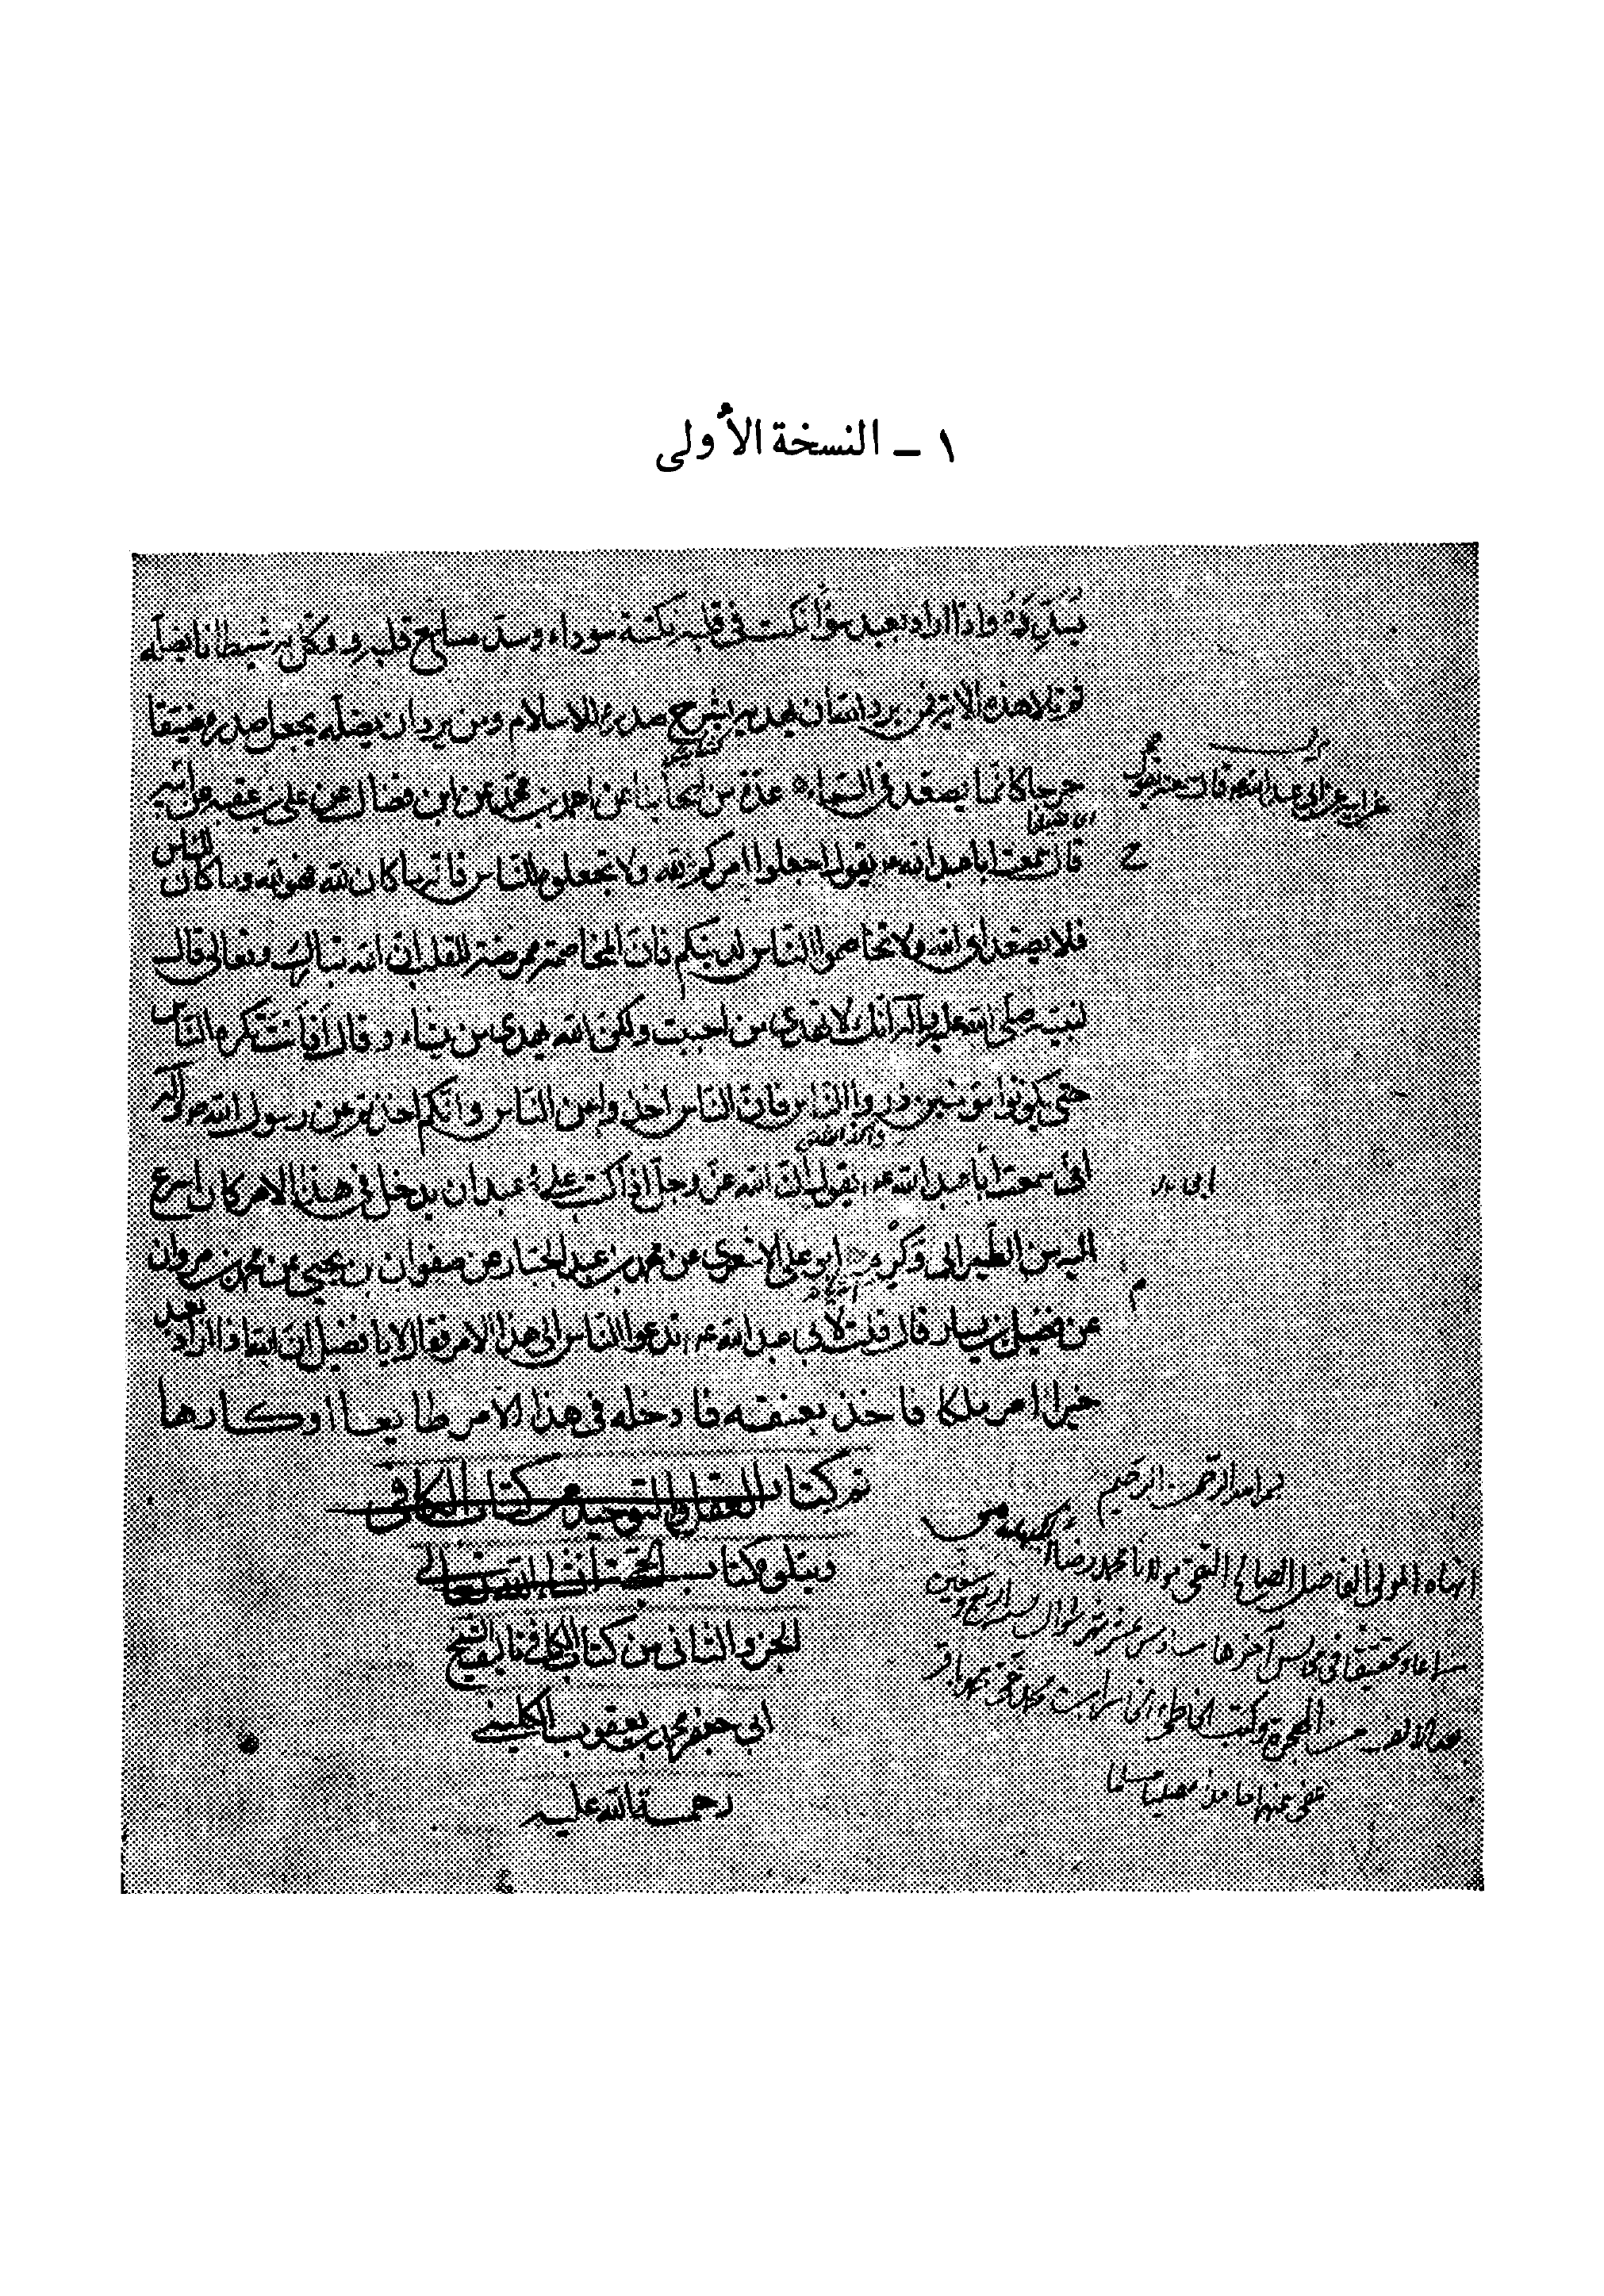 ١ ـ النسخة الأولى
يسدده واذا اراد بعبد سوأ نكت في قلبه نكتة سوداء وسد مسامع قلبه ووكل به شيطانا يضله
ثم تلا هذه الاية فمن يرد الله ان يهديه يشرح صدره للاسلام ومن يرد ان يضله يجعل صدره ضيقا
حرجا كانما يصعد في السماء عدة من اصحابنا عن احمد بن محمد عن ابن فضال عن علي بن عقبة عن ابيه
قال سمعت ابا عبد الله ع يقول اجعلوا امركم لله ولا تجعلوه للناس فانه ما كان لله فهو لله وما كان للناس
فلا يصعد الى الله ولا تخاصموا الناس لدينكم فان المخاصمة ممرضة للقلب ان الله تبارك وتعالى قال
لنبيه صلى الله عليه وآله انك لا تهدي من احببت ولكن الله يهدي من يشاء وقال أفأنت تكره الناس
حتى يكونوا مؤمنين ذروا الناس فان الناس اخذوا عن الناس وانكم اخذتم عن رسول الله ص وآله
اني سمعت أبا عبد الله ع يقول ان الله عز وجل اذا كتب على عبد ان يدخل في هذا الامر كان اسرع
اليه من الطير الى وكره ابو علي الاشعري عن محمد بن عبد الجبار عن صفوان بن يحيى عن محمد بن مروان
عن فضيل بن يسار قال قلت لابي عبد الله ع ندعوا الناس الى هذا الامر فقال لا يا فضيل ان الله اذا اراد بعبد
خيرا امر ملكا فاخذ بعنقه فادخله في هذا الامر طايعا اوكارها
تم كتاب العقل والتوحيد من كتاب الكافي
ويتلوه كتاب الحجة انشاء الله تعالى
الجزو الثاني من كتاب الكافي تاليف الشيخ
ابي جعفر محمد بن يعقوب الكليني
رحمة الله عليه
بسم الله الرحمن الرحيم
انهاه المولى الفاضل الصالح التقي مولانا محمد رضا
سماعا وتحقيقا في مجالس آخرها
بعد الالف من الهجرة وكتب محمد باقر
عفي عنهما حامدا مصليا مسلما